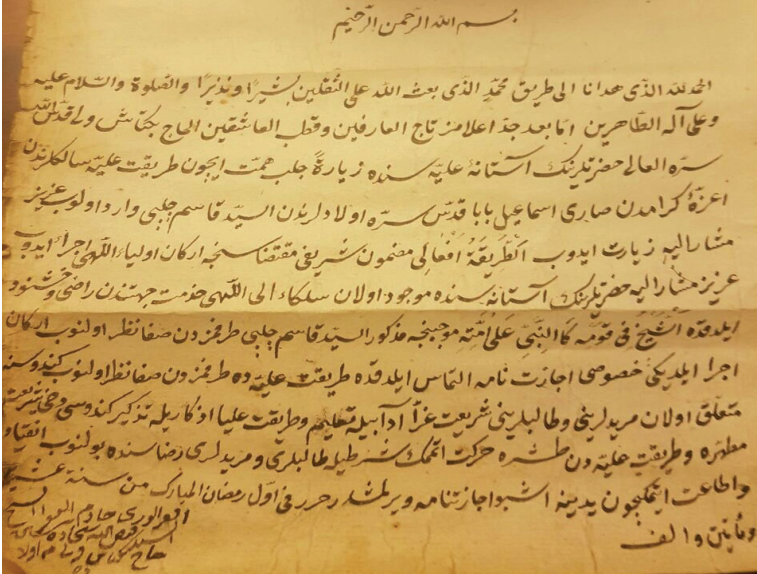 بسم الله الرّحمن الرّحيم
الحمد لله الذى هدانا الى طريق محمّدٍ الذى بعث الله على الثقلين بشيرًا و نذيرًا والصّلوة والسّلام عليه
وعلى آله الطاهرين امّا بعد جدّ اعلامز تاج العارفين وقطب العاشقين الحاج بكتاش ولى قدّس الله
سرّه العالى حضرتلرينك آستانۀ عليه سنده زيارةً جلب همّت ايچون طريقت عليّه سالكلرندن
اعزّۀ كرامدن صارى اسماعيل بابا قدّس سرّه اولادلرندن السيّد قاسم چلبى وارد اولوب عزيز
مشار اليه زيارت ايدوب الطّريقة افعالى مضمون شريفى مقتضاسنجه اركان اولياء اللّهى اجرا ايدوب
عزيز مشار اليه حضرتلرينك آستانه سنده موجود اولان سلكاء الى اللّهى خدمت جهتندن راضى وخشنود
ايلدكده الشّيخ فى قومه كالنّبىّ على امّته موجبنجه مذكور السيّد قاسم چلبى طرفمزدن صفا نظر اولنوب اركان
اجرا ايلديكى خصوصى اجازت نامه التماس ايلدكده طريقت عليّه ده طرفمزدن صفا نظر اولنوب كندوسنه
متعلق اولان مريدلرينى وطالبلرينى شريعت غرّا آدابيله تعليم وطريقت عليا اذكاريله تذكير كندوسى دخى شريعت
مطهّره وطريقت عليّه دن طشره حركت اتمامك شرطيله طالبلرى ومريدلرى رضاسنده بولنوب انقياد
واطاعت ايتمكچون يدينه اشبو اجازتنامه ويرلمشدر حرر فى اوّل رمضان المبارك من سنة عشر
ومأتين والف
السيد فيض الله